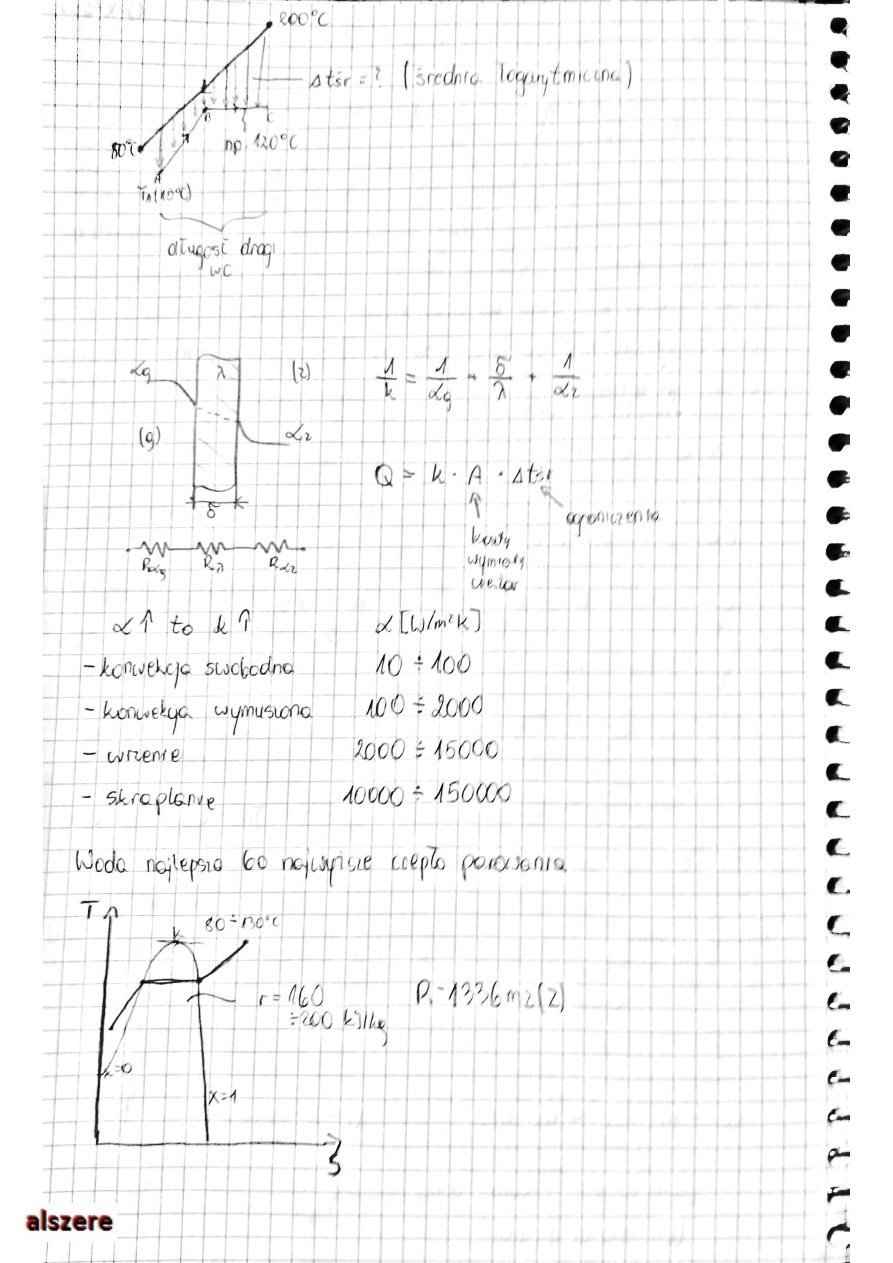 200°C
Δtśr = ? (średnia logarytmiczna)
80°C
np. 120°C
A
TA (10°C)
długość drogi
WC
αg
λ
(z)
1/k = 1/αg + δ/λ + 1/αz
(g)
αz
Q = k · A · Δtśr
δ
ograniczenia
koszty
wymiary
ciężar
Rαg Rλ Rαz
α↑ to k↑ α [W/m²K]
- konwekcja swobodna 10 ÷ 100
- konwekcja wymuszona 100 ÷ 2000
- wrzenie 2000 ÷ 15000
- skraplanie 10000 ÷ 150000
Woda najlepsza bo najwyższe ciepło parowania
T
80 ÷ 130°C
k
r = 160
÷200 kJ/kg
x=0
x=1
alszere